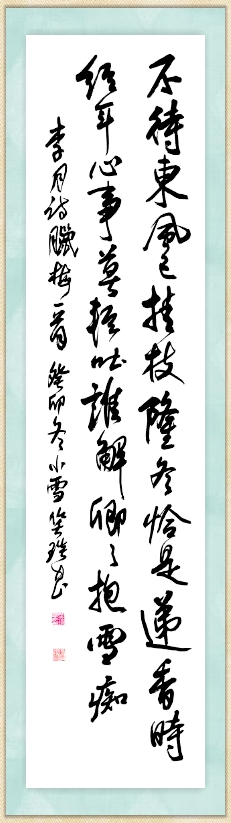 不待東風已挂枝隆冬恰是遞香時
經年心事莫輕吐誰解卿々抱雪痴
李月詩臘梅一首癸卯冬小雪書